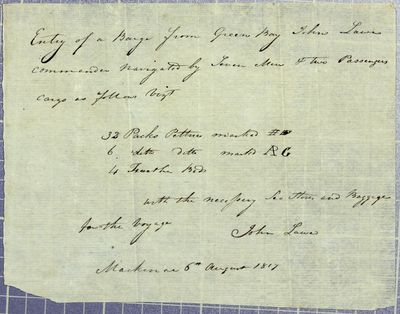 Entry of a Barge from Green Bay John Lawe
commander navigated by Seven Men & two Passengers
cargo as follows Vizt
32 Packs Peltries marked #
6 ditto ditto markd RG
4 Feather Beds
with the necessary Sea Stores and Baggage
for the Voyage
John Lawe
Mackinac 6th August 1817